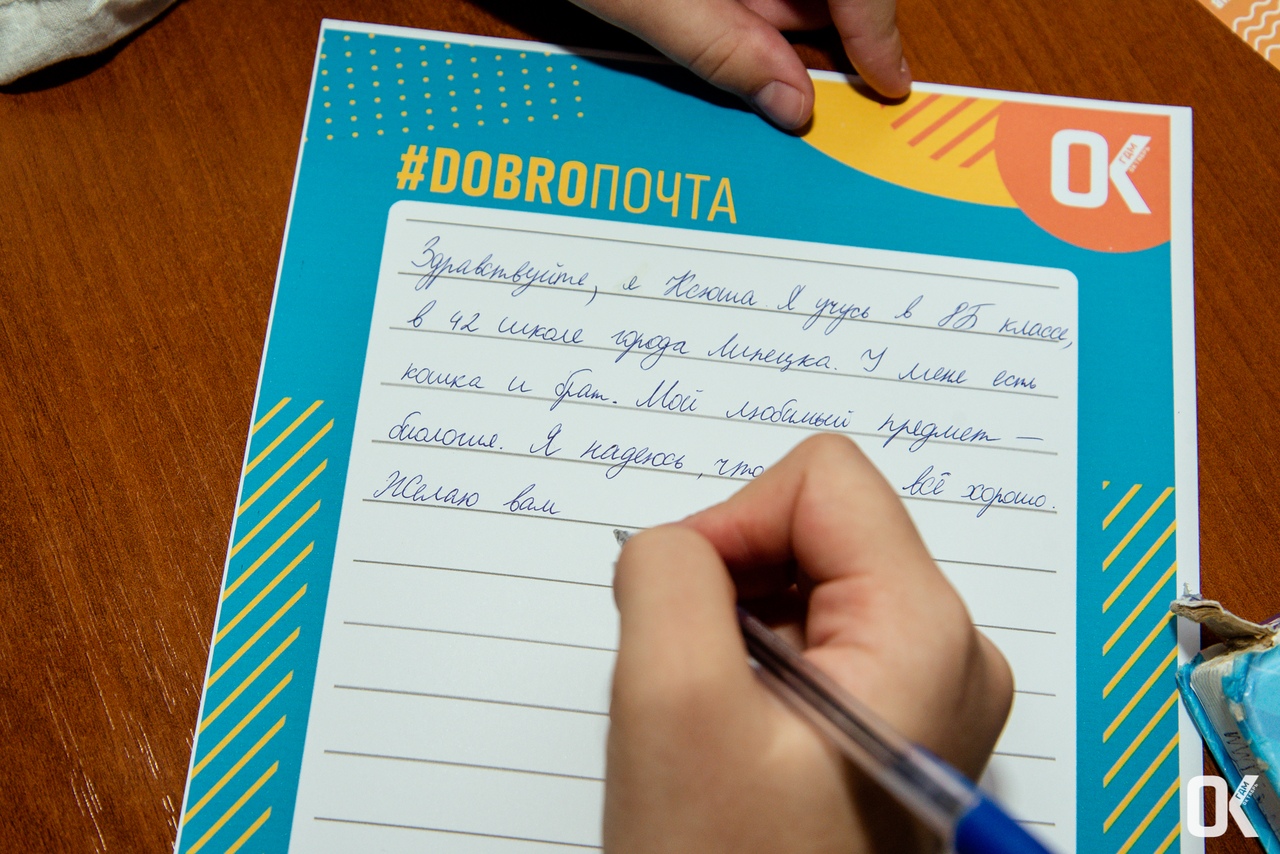 #DOBROПОЧТА
ОК
ГДМ
Здравствуйте, я Ксюша. Я учусь в 8Б классе,
в 42 школе города Липецка. У меня есть
кошка и брат. Мой любимый предмет —
биология. Я надеюсь, что всё хорошо.
Желаю вам
ОК
ГДМ